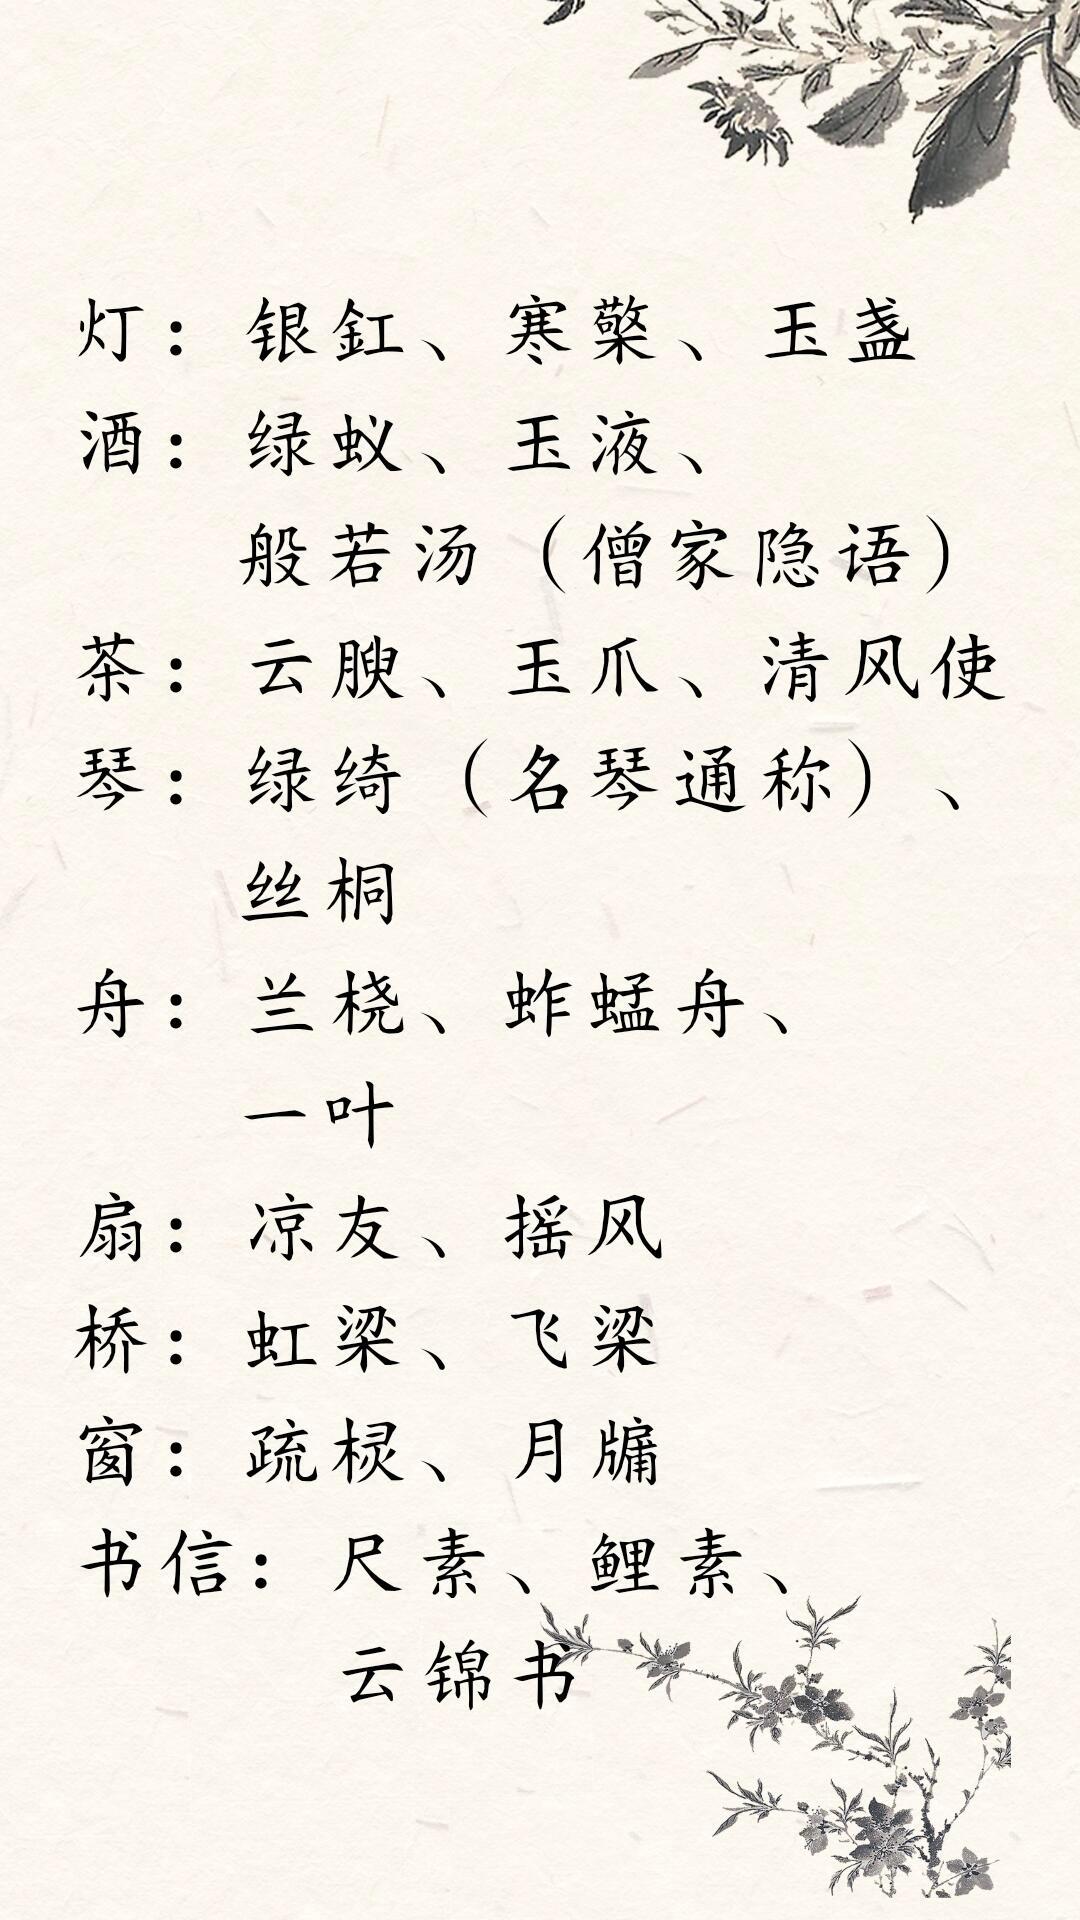 灯：银釭、寒檠、玉盏
酒：绿蚁、玉液、
般若汤（僧家隐语）
茶：云腴、玉爪、清风使
琴：绿绮（名琴通称）、
丝桐
舟：兰桡、蚱蜢舟、
一叶
扇：凉友、摇风
桥：虹梁、飞梁
窗：疏棂、月牖
书信：尺素、鲤素、
云锦书